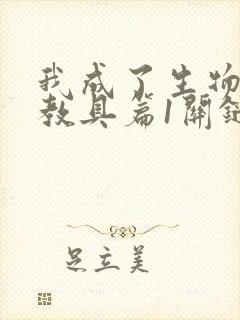 我成了生物
教具篇1開鍵
足立美